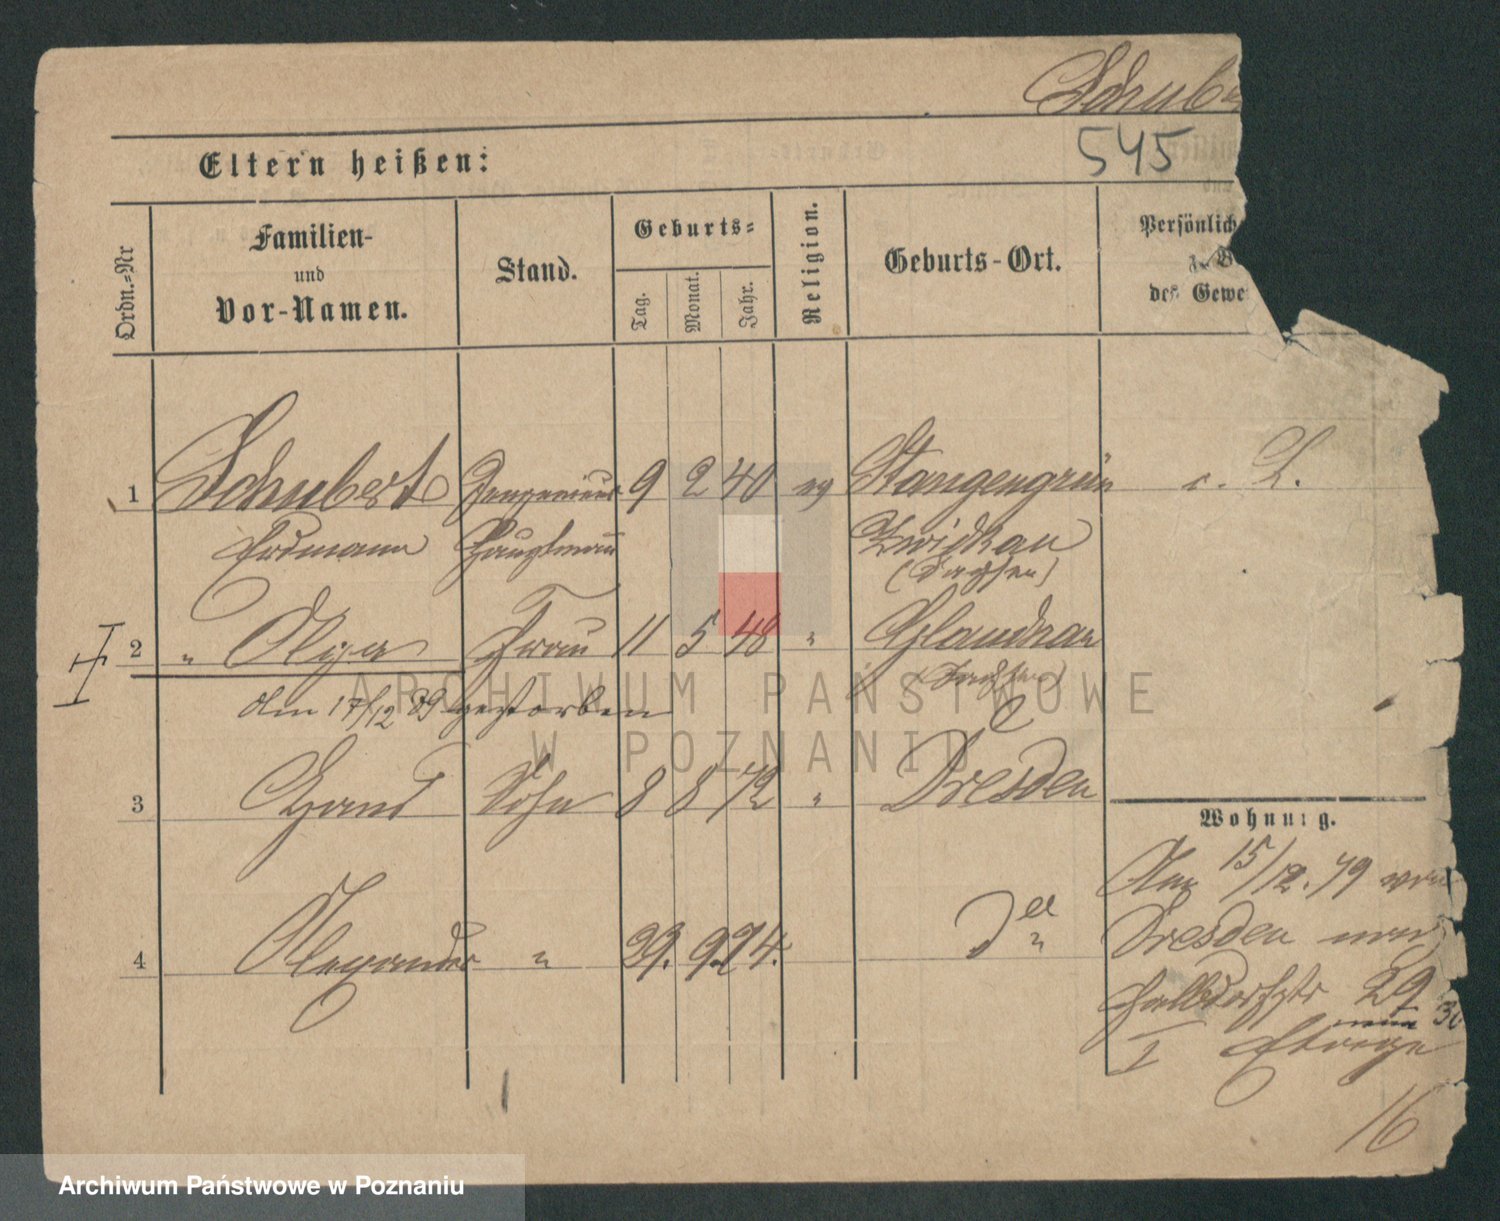 Schube
545
Eltern heißen:
Ordn.=Nr
Familien-
und
Vor-Namen.
Stand.
Geburts=
Tag.
Monat.
Jahr.
Religion.
Geburts-Ort.
Persönlich
des Gewe
1 Schubert Ingenieur 9 2 40 ev Stangengrün c. L.
Erdmann Hauptmann Zwickau
(Sachsen)
2 " Olga Frau 11 5 48 " Glauchau
(Sachsen)
Am 17/12 89 gestorben
3 Hans Sohn 8 8 72 " Dresden
4 Alexander " 29. 9. 74.
Wohnung.
Am 15/12. 79 von
Dresden nach
Halbdorfstr 29
neue 30
I Etage
16
ARCHIWUM PAŃSTWOWE
W POZNANIU
Archiwum Państwowe w Poznaniu